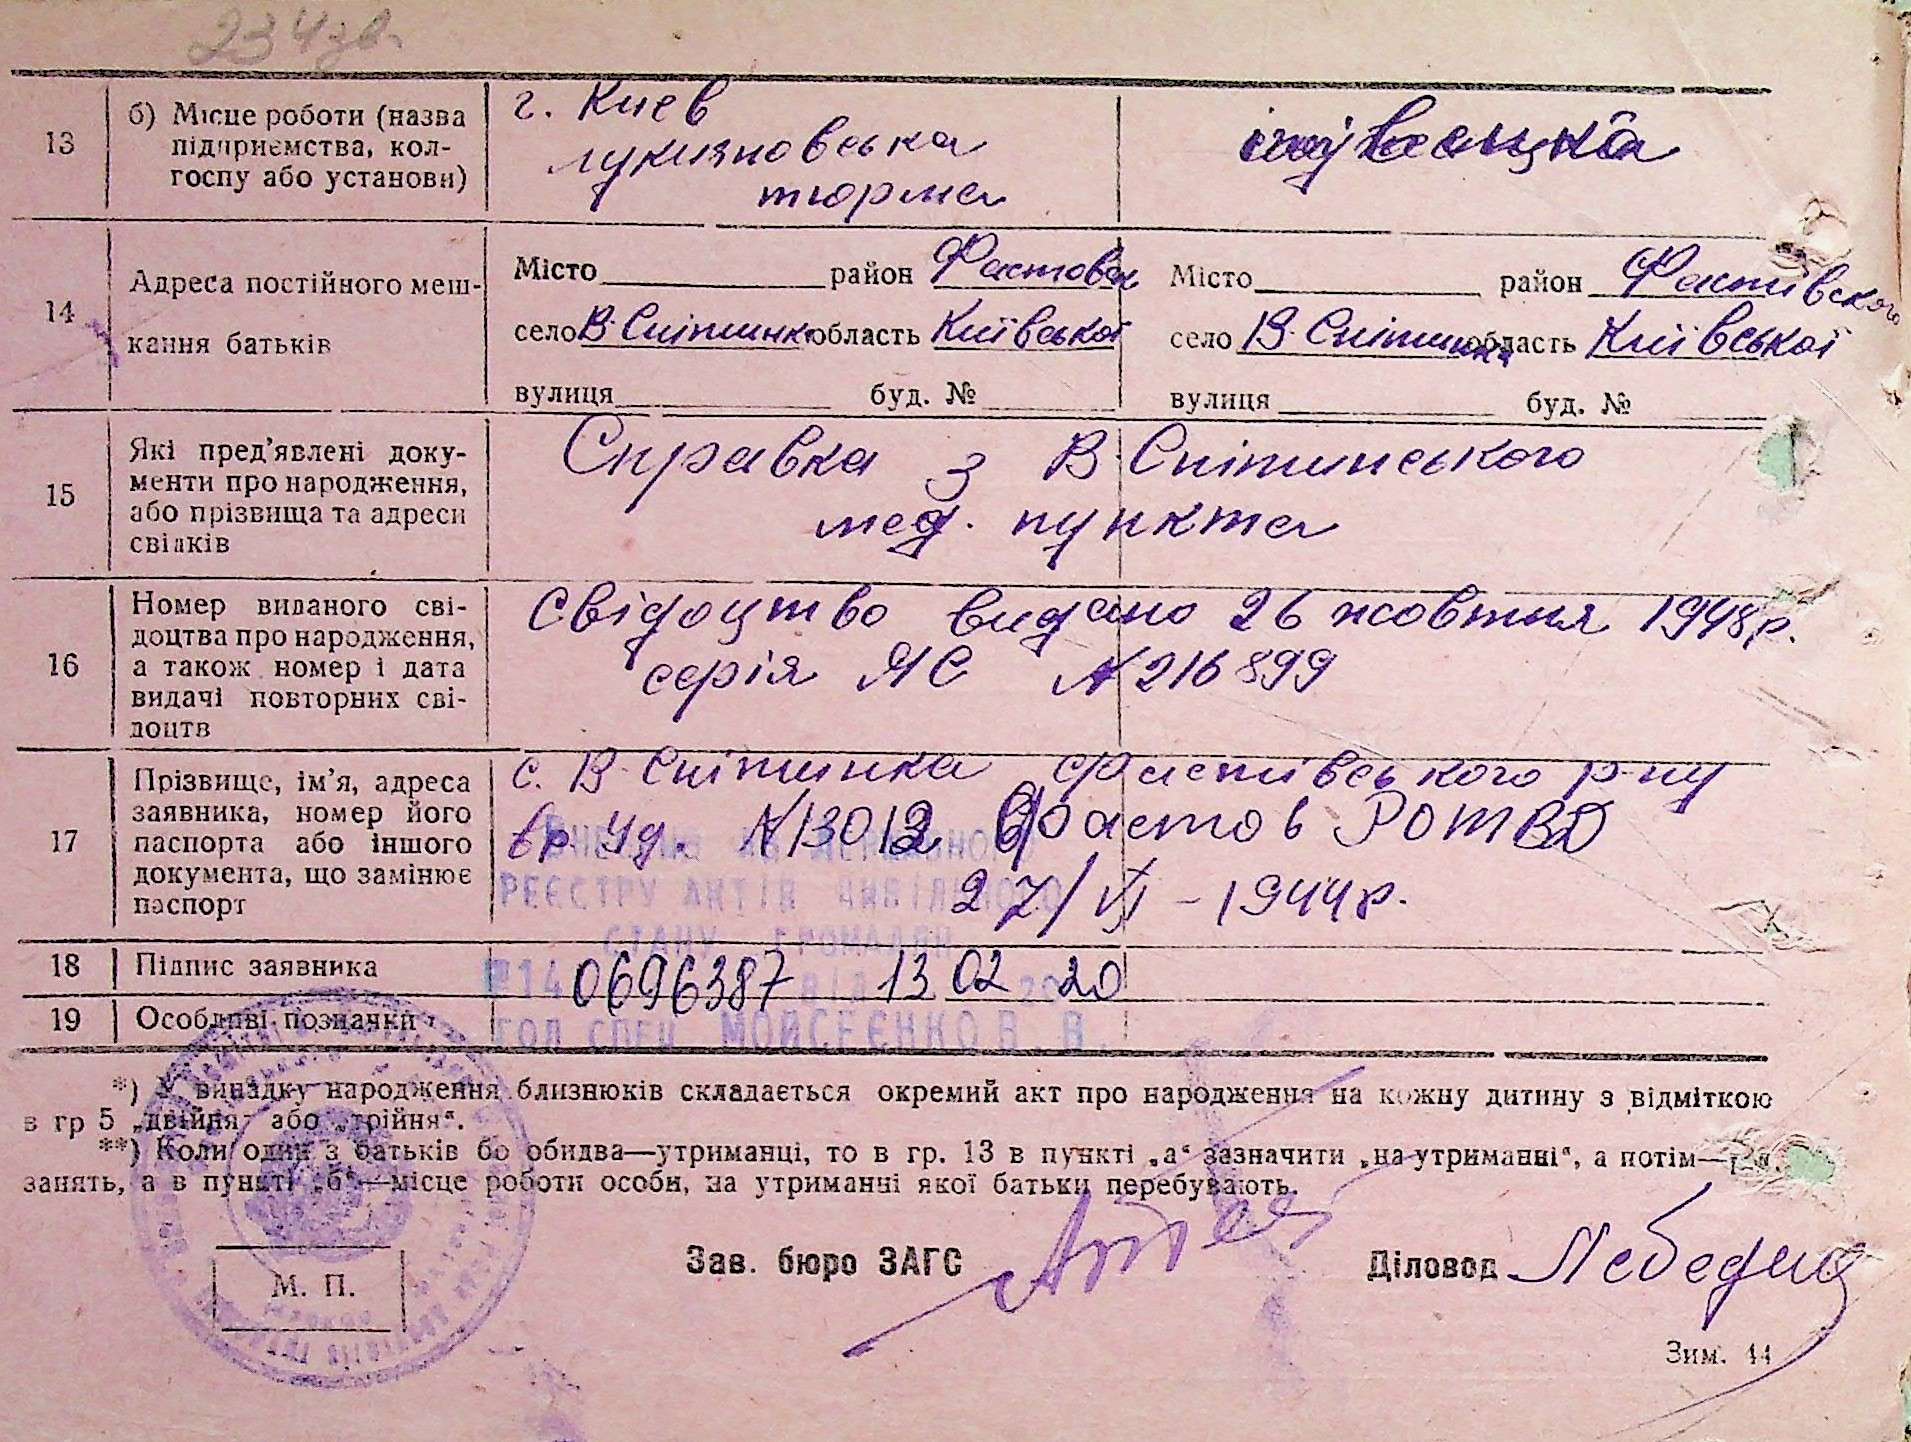 234зв.
13
б) Місце роботи (назва
підприємства, кол-
госпу або установи)
г. Киев
лукияновська
тюрма
14
Адреса постійного меш-
кання батьків
Місто район Фастовск
село В. Снітинка область Київської
вулиця буд. №
Місто район Фастівского
село В. Снітинка область Київської
вулиця буд. №
15
Які пред’явлені доку-
менти про народження,
або прізвища та адреси
свідків
Справка з В. Снітинського
мед. пункта
16
Номер виданого сві-
доцтва про народження,
а також номер і дата
видачі повторних сві-
доцтв
Свідоцтво видано 26 жовтня 1948р.
серія ЯС № 216899
17
Прізвище, ім’я, адреса
заявника, номер його
паспорта або іншого
документа, що замінює
паспорт
с. В. Снітинка Фастівського р-ну
вр. уд. №13012 Фастов РОМВД
27/VI - 1944р.
ВНЕСЕНО ДО ДЕРЖАВНОГО
РЕЄСТРУ АКТІВ ЦИВІЛЬНОГО
СТАНУ ГРОМАДЯН
18
Підпис заявника
№14 0696387 від 13 02 2020
19
Особливі позначки
ГОЛ СПЕЦ МОЙСЕЄНКО В. В.
*) У випадку народження близнюків складається окремий акт про народження на кожну дитину з відміткою
в гр 5 „двійня“ або „трійня“.
**) Коли один з батьків бо обидва—утриманці, то в гр. 13 в пункті „а“ зазначити „на утриманні“, а потім—
занять, а в пункті „б“—місце роботи особи, на утриманні якої батьки перебувають.
М. П.
Зав. бюро ЗАГС
Діловод Лебедин
Зим. 44